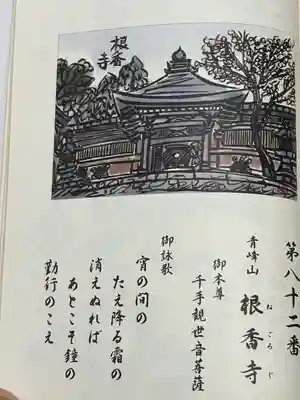 根香
寺
第八十二番
青峰山 根香寺
ねごろじ
御本尊
千手観世音菩薩
御詠歌
宵の間の
たえ降る霜の
消えぬれば
あとこそ鐘の
勤行のこえ